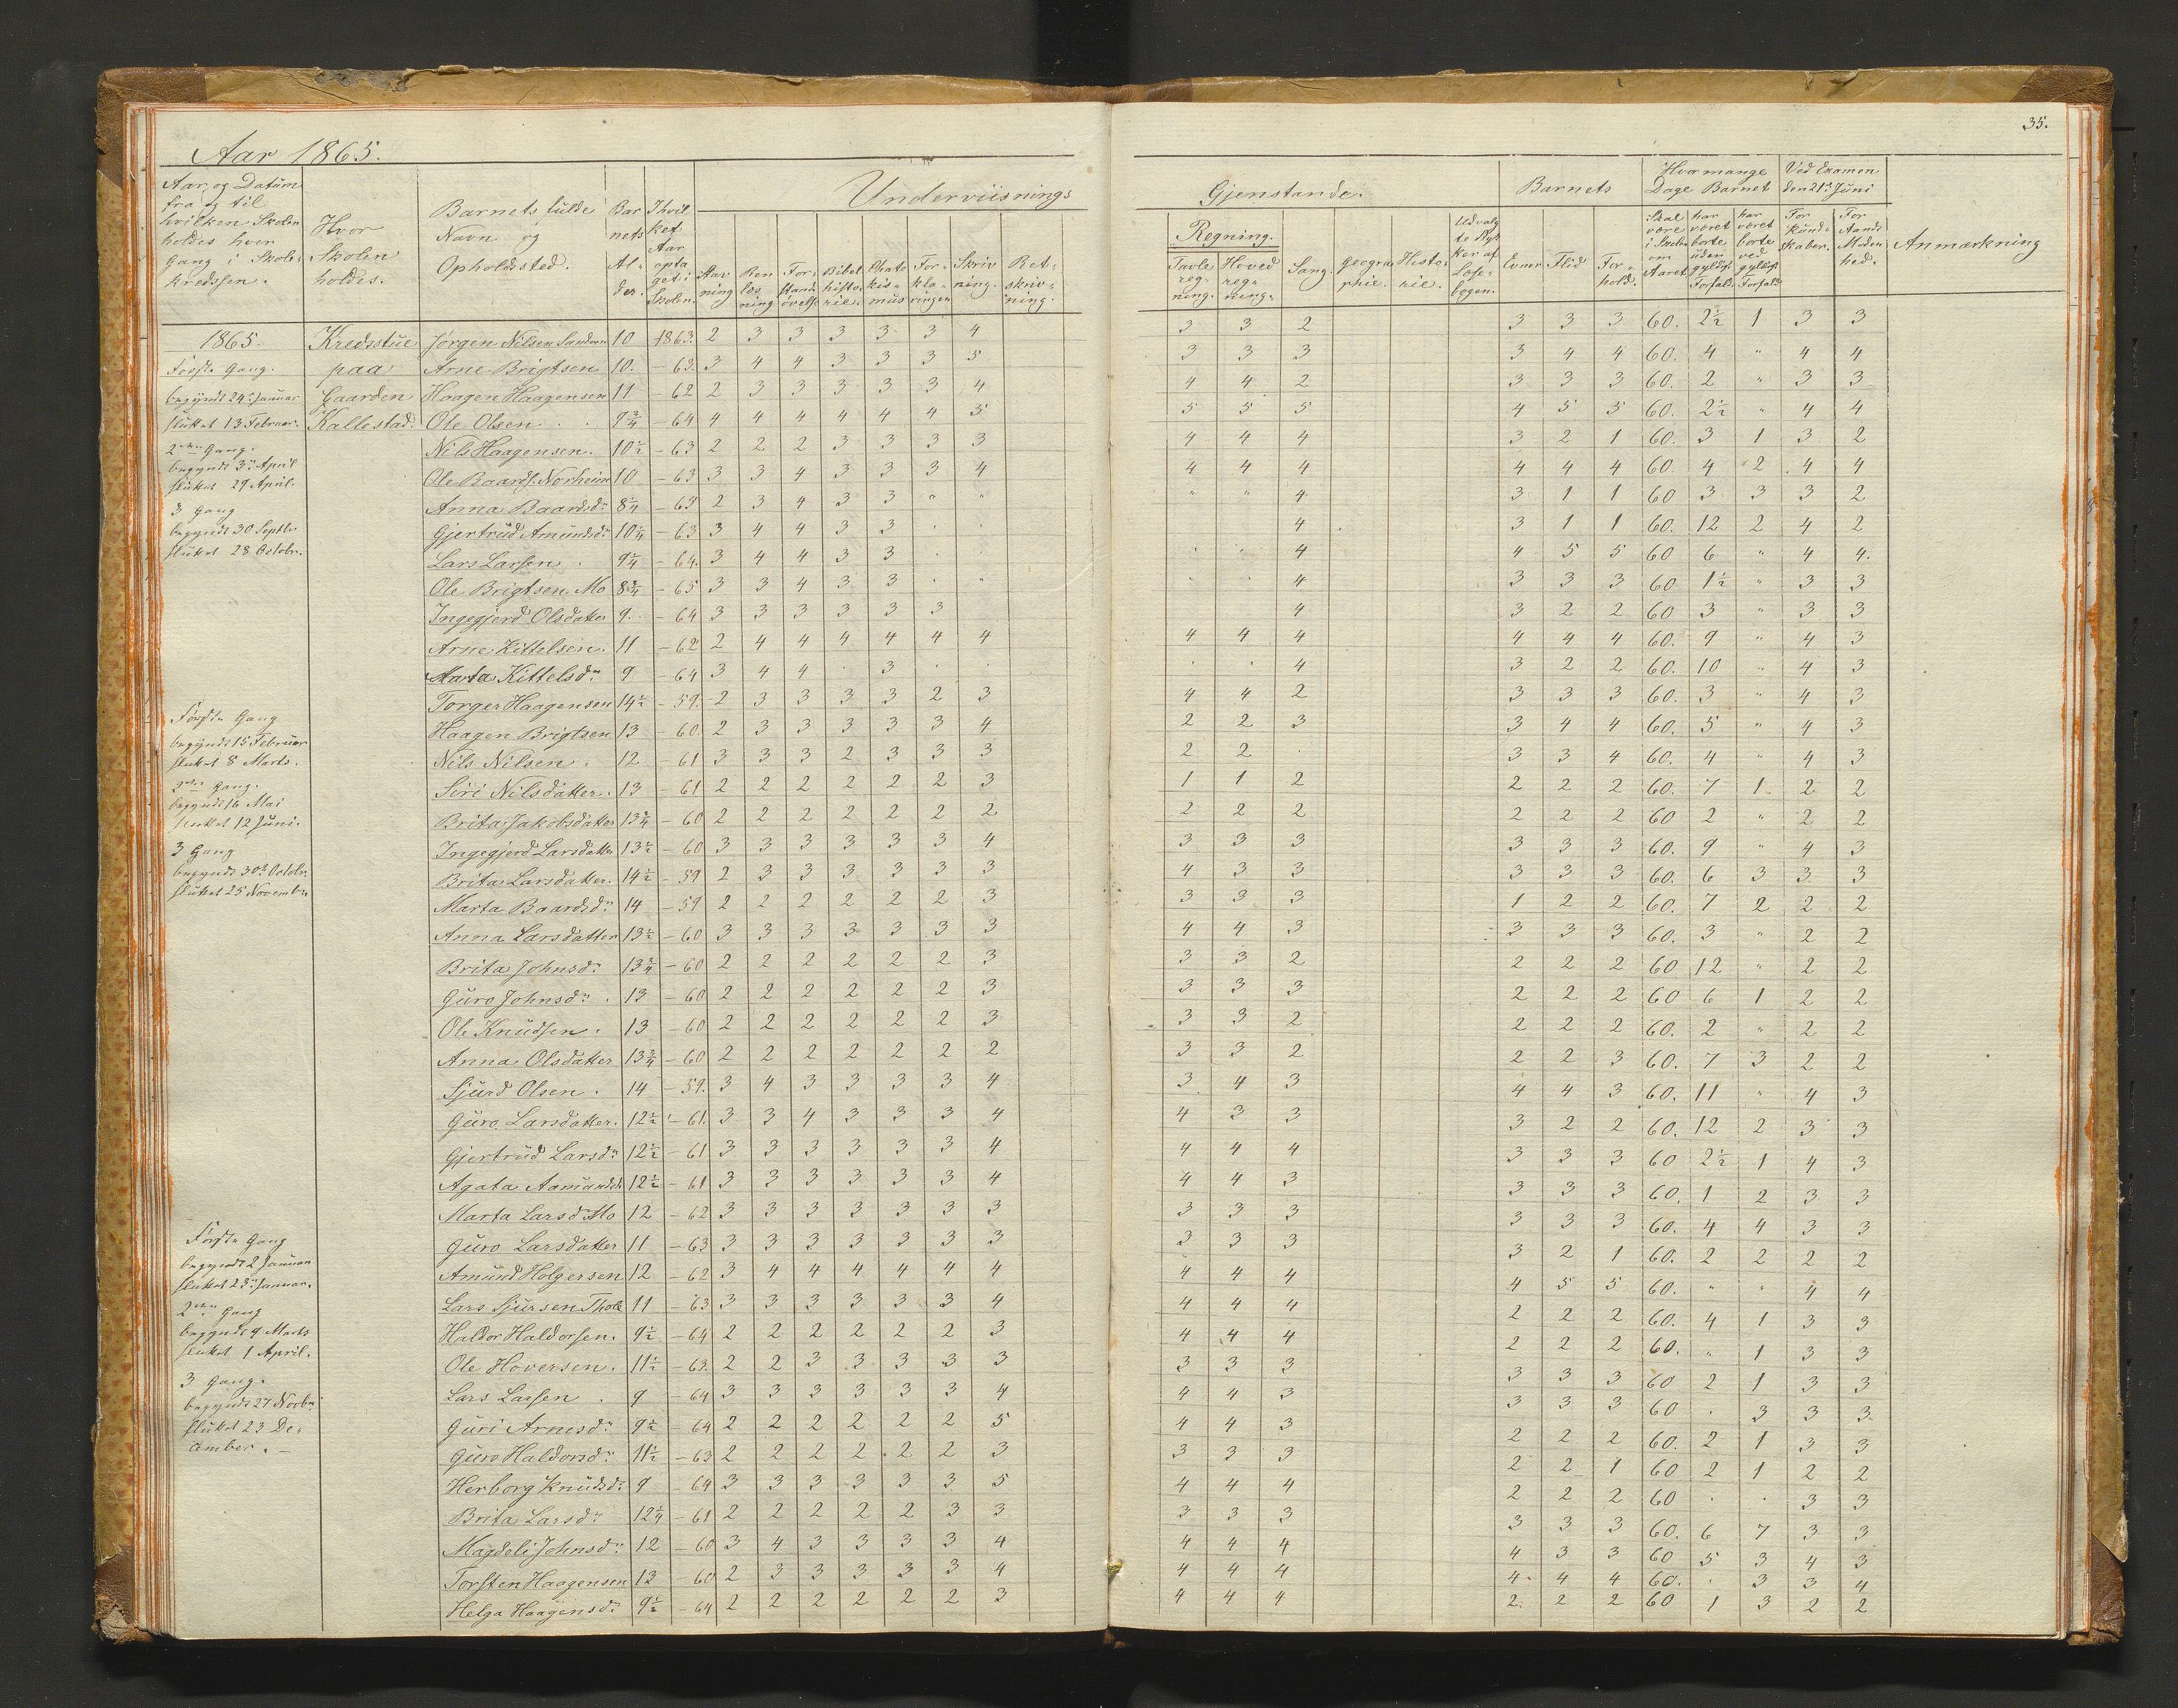 35.
Aar 1865.
Aar og Datum fra og til hvilken Skolen holdes hver Gang i Skolekredssen.
Hvor Skolen holdes.
Barnets fulde Navn og Opholdssted.
Barnets Alder.
I hvilket Aar optaget i Skolen.
Underviisnings Gjenstande.
Barnets
Hvor mange Dage Barnet
Ved Examen den 21de Juni
Anmærkning
Regning.
Tavleregning. Hovedregning. Sang. Geographie. Historie. Udvalgte Stykker af Læsebogen.
Evner Flid Forhold.
1865. Kredsstue Jørgen Nilsen Sandven 10 1863. 2 3 3 3 3 3 4 3 3 2 3 3 3 60. 2½ 1 3 3
Første Gang. paa Arne Brigtsen 10. -63. 3 4 4 3 3 3 5 3 3 3 3 4 4 60. 4 " 4 4
begyndt 24de Januar Gaarden Haagen Haagensen 11 -62 2 3 3 3 3 3 4 4 4 2 3 3 3 60. 2 " 3 3
sluttet 13 Februar. Kallestad. Ole Olsen 9¾ -64 4 4 4 4 4 4 5 5 5 5 4 5 5 60. 2½ " 4 4
2den Gang.
Nils Haagensen. 10½ -63 2 2 2 3 3 3 3 4 4 4 3 2 1 60. 3 1 3 2
begyndt 3de April
sluttet 29 April.
Ole Baards. Norheim 10 -63 3 3 4 3 3 3 4 4 4 4 4 4 4 60. 4 2 4 4
3 Gang
Anna Baardsdr 8¼ -63 2 3 4 3 3 " " " " 4 3 1 1 60 3 3 3 2
begyndt 30 Septbr
Gjertrud Amundsdr 10¼ -63 3 4 4 3 3 4 3 1 1 60. 12 2 4 2
sluttet 28 Octobr.
Lars Larsen 9¼ -64. 3 4 4 3 3 4 4 5 5 60 6 " 4 4.
Ole Brigtsen Mo 8¾ -65 3 3 4 3 3 4 3 3 3 60 1½ " 3 3
Ingegjerd Olsdatter 9. -64 3 3 3 3 3 3 4 3 2 2 60 3 " 3 3
Arne Kittelsen. 11 -62 2 4 4 4 4 4 4 4 4 4 4 4 4 60. 9 " 4 3
Marta Kittelsdr 9 -64 3 4 4 . 3 . . 4 3 2 2 60. 10 " 4 3
Torger Haagensen 14½ -59. 2 3 3 3 3 2 3 4 4 2 3 3 3 60. 3 " 4 3
Første Gang
Haagen Brigtsen 13 -60. 2 3 3 3 3 3 4 2 2 3 3 4 4 60. 5 " 4 3
begyndt 15 Februar
sluttet 8 Marts.
Nils Nilsen. 12 -61 3 3 3 2 3 3 3 2 2 . 3 3 4 60. 4 " 4 3
2den Gang.
Siri Nilsdatter. 13 -61 2 2 2 2 2 2 3 1 1 2 2 2 2 60. 7 1 2 2
begyndt 16 Mai
sluttet 12 Juni.
Brita Jakobsdatter 13¾ -60 2 2 2 2 2 2 2 2 2 2 2 2 2 60 2 " 2 2
3 Gang
Ingegjerd Larsdatter 13½ -60 3 3 3 3 3 3 4 3 3 3 3 3 3 60. 9 " 4 3
begyndt 30te Octobr.
Brita Larsdatter. 14½ -59 2 3 3 3 3 3 3 4 3 3 3 3 3 60. 6 3 3 3
sluttet 25 Novembr.
Marta Baardsdr 14 -59 2 2 2 2 2 2 3 3 3 3 1 2 2 60. 7 2 2 2
Anna Larsdatter 13½ -60 3 3 3 3 3 3 3 4 4 3 3 3 3 60. 3 " 2 2
Brita Johnsdr 13¾ -60 2 2 2 2 2 2 3 3 3 2 2 2 2 60 12 " 2 2
Guro Johnsdr. 13 -60 2 2 2 2 2 2 3 3 3 3 2 2 2 60 6 1 2 2
Ole Knudsen. 13 -60 2 2 2 2 2 2 3 3 3 2 2 2 2 60. 2 " 2 2
Anna Olsdatter 13¾ -60 2 2 2 2 2 2 2 3 3 2 2 2 3 60. 7 3 2 2
Sjurd Olsen. 14 -59. 3 4 3 3 3 3 4 3 4 3 4 4 3 60. 11 " 4 3
Guro Larsdatter. 12½ -61. 3 3 4 3 3 3 4 4 3 3 3 2 2 60. 12 2 3 3
Gjertrud Larsdr 12½ -61 3 3 3 3 3 3 4 4 4 4 3 3 3 60 2½ 1 4 3
Agata Aamundsdr 12½ -61 3 3 3 3 3 3 4 4 4 3 3 3 3 60. 1 2 3 3
Marta Larsd. Mo 12 -62 3 3 3 3 3 3 3 3 3 3 3 3 3 60. 4 4 3 3
Første Gang
Guro Larsdatter 11 -63 3 3 3 3 3 3 3 3 3 3 3 2 1 60. 2 2 2 2
begyndt 2 Januar
Amund Holgersen 12 -62 3 4 4 4 4 4 4 4 4 4 4 5 5 60. " " 4 4
2den Gang
Lars Sjursen Thoe 11 -63 3 3 3 3 3 3 4 4 4 4 2 2 2 60. 4 1 3 3
begyndt 9 Marts
Haldor Haldorsen. 9½ -64 2 2 2 2 2 2 3 4 4 4 2 2 2 60. " 1 3 3
sluttet 1 April.
Ole Hoversen. 11½ -63. 2 2 3 3 3 3 3 3 3 3 3 3 3 60 2 1 3 3
3 Gang.
Lars Larsen 9 -64 3 3 3 3 3 3 4 4 4 3 3 3 3 60 . 3 3 3
begyndt 27 Novbr
sluttet 23 De-
Guri Arnesdr 9½ -64 2 2 2 2 2 2 5 4 4 3 2 2 2 60. 2 1 3 3
cember.
Guro Haldorsdr 11½ -63 2 2 2 2 2 2 3 3 3 3 2 2 1 60 2 1 2 2
Herborg Knudsdr 9 -64 3 3 3 3 3 3 5 4 4 4 2 2 2 60 . . 3 3
Brita Larsdr 12¼ -61 2 2 2 2 2 3 3 3 3 3 3 3 3 60. 6 7 3 3
Magdeli Johnsdr 12 -60 3 4 3 3 3 3 4 4 4 4 4 3 3 60 5 3 4 3
Torsten Haagensen 13 -60 2 3 3 3 3 3 4 4 4 4 4 4 4 60. . 3 3 4
Helga Haagensdr 9½ -64 2 2 2 2 2 2 3 4 4 4 2 2 2 60 1 3 2 2